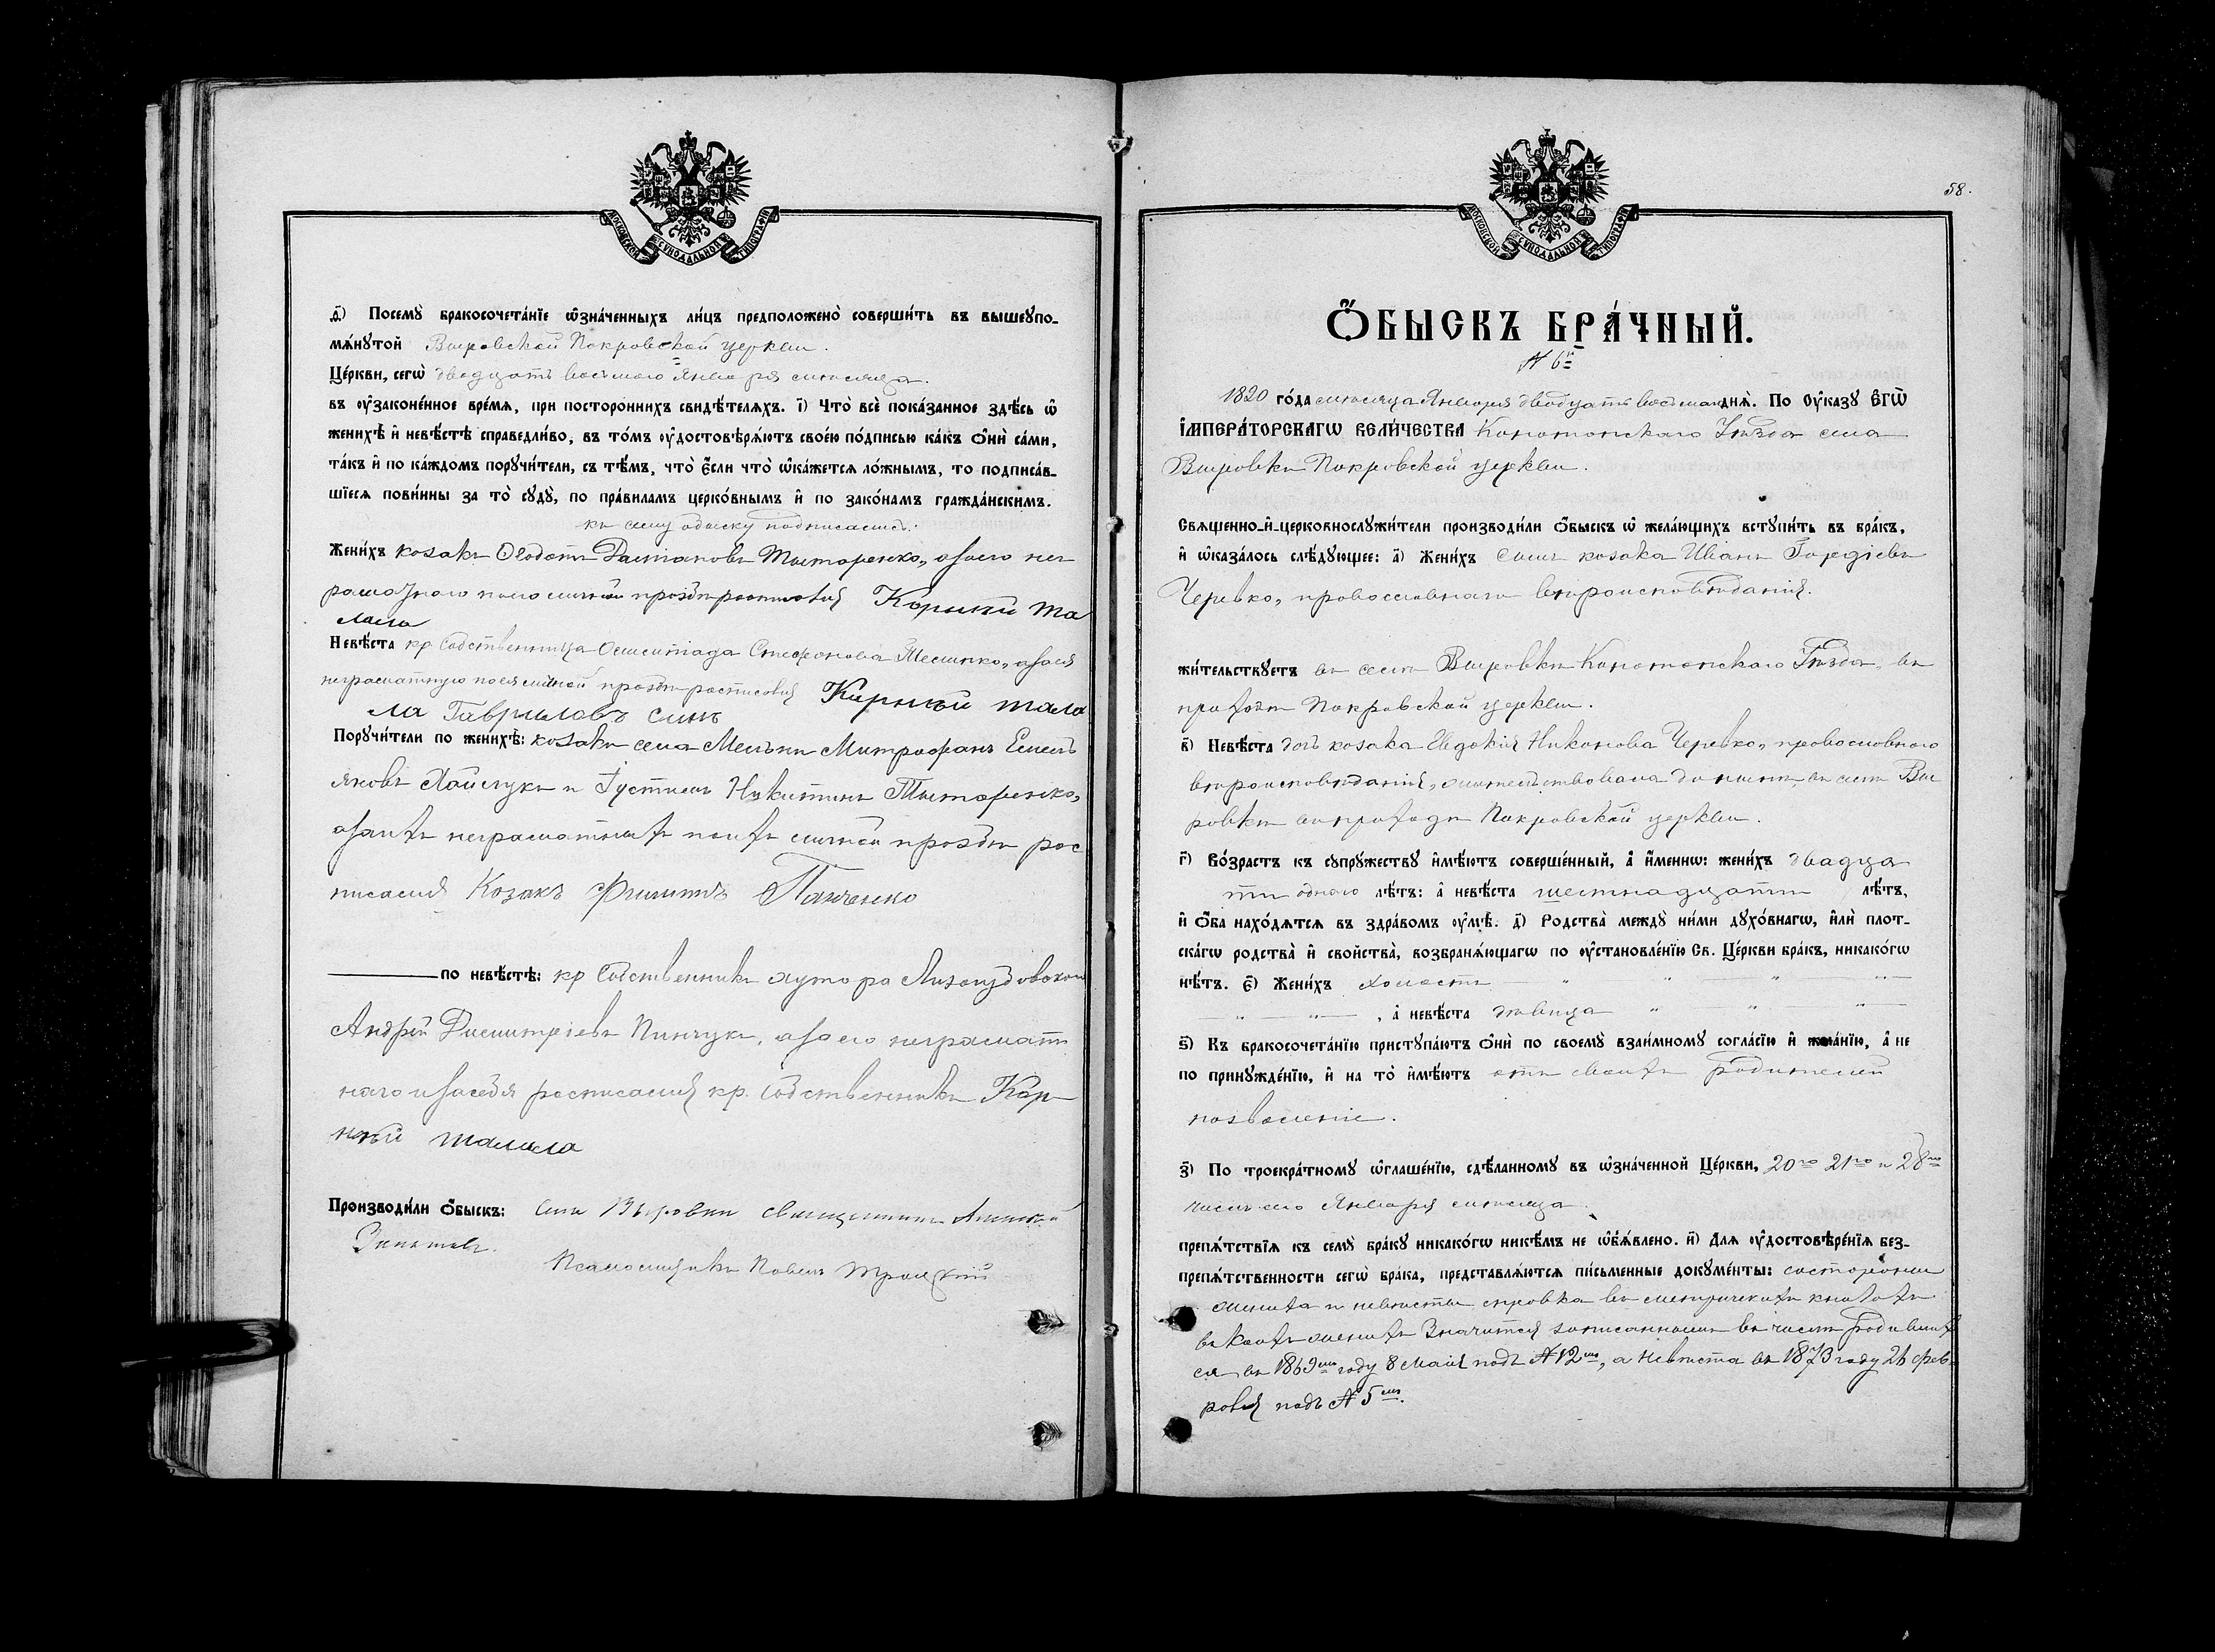 МОСКОВСКОЙ СѴНОДАЛЬНОЙ ТИПОГРАФІИ
Посемꙋ̀ бракосочета́нїе ѡ҆зна́ченныхъ ли́цъ предположено̀ соверши́ть въ вышеꙋпо-
мѧ́нꙋтой Выровской Покровской церкви.
Це́ркви, сегѡ̀ двадцать восьмого Января мѣсяца.
въ ᲂу҆зако́ненное вре́мѧ, при посторо́ннихъ свидѣ́телѧхъ. і҃) Что̀ всѐ пока́занное здѣ́сь ѡ҆
женихѣ̀ и҆ невѣ́стѣ справедли́во, въ то́мъ ᲂу҆достовѣрѧ́ютъ свое́ю по́дписью ка́къ ѻ҆нѝ са́ми,
та́къ и҆ по ка́ждомъ порꙋчи́тели, съ тѣ́мъ, что̀ є҆́сли что̀ ѡ҆ка́жетсѧ ло́жнымъ, то подписа́в-
шїесѧ пови́нны за то̀ сꙋдꙋ̀, по пра́виламъ церко́внымъ и҆ по зако́намъ гражда́нскимъ.
къ сему обыску подписались:
Жени́хъ козакъ Ѳеодотъ Тытаренко, а за него не
грамотного по его личной прозбѣ росписовся Корнѣй Та
лала
Невѣ́ста кр собственница Стефанова а за нея
неграмотную по ея личной прозбѣ росписовся Карнѣй Тала
ла Гаврыловъ синъ
Порꙋчи́тели по женихѣ̀: козаки села Митрофанъ
Яковъ и Іустинъ Никитинъ Тытаренко,
а за ихъ неграмотныхъ по ихъ личной прозбѣ рос
писался Козакъ Филипъ Панченко
по невѣ́стѣ: кр собственникъ хутора
Андрей Димитріевъ Пинчукъ, а за его неграмот
наго и за себя росписался кр. собственникъ Кор
нѣй Талала
Производи́ли ѻ҆́быскъ: Села Выровки священникъ
Псаломщикъ Павелъ Троицкій
58.
МОСКОВСКОЙ СѴНОДАЛЬНОЙ ТИПОГРАФІИ
Ѻ҆́БЫСКЪ БРА́ЧНЫЙ.
№ 6й
1890 го́да мѣсяца Января двадцать восьмого днѧ̀. По ᲂу҆ка́зꙋ Є҆ГѠ̀
І҆МПЕРА́ТОРСКАГѠ ВЕЛИ́ЧЕСТВА Конотопскаго Уѣзда села
Выровки Покровской церкви.
Свѧщенно-и҆-церковнослꙋжи́тели производи́ли ѻ҆́быскъ ѡ҆ жела́ющихъ встꙋпи́ть въ бра́къ,
и҆ ѡ҆каза́лось слѣ́дꙋющее: а҃) Жени́хъ сынъ козака Иванъ Гордіевъ
Черевко, православнаго вѣроисповѣданія.
жи́тельствꙋетъ въ селѣ Выровкѣ Конотопскаго Уѣзда, въ
приходѣ Покровской церкви.
в҃) Невѣ́ста дочь козака Евдокія Никонова Черевко, православного
вѣроисповѣданія, жительствовала до нынѣ въ селѣ Вы
ровкѣ въ приходѣ Покровской церкви.
г҃) Во́зрастъ къ сꙋпрꙋ́жествꙋ и҆мѣ́ютъ соверше́нный, а҆ и҆́меннѡ: жени́хъ двадца
ти одного лѣ́тъ: а҆ невѣ́ста шестнадцати лѣ́тъ,
и҆ ѻ҆́ба нахо́дѧтсѧ въ здра́вомъ ᲂу҆мѣ̀. д҃) Родства̀ междꙋ̀ ни́ми дꙋхо́внагѡ, и҆лѝ плот-
ска́гѡ родства̀ и҆ сво́йства, возбранѧ́ющагѡ по ᲂу҆становле́нїю Св. Це́ркви бра́къ, никако́гѡ
нѣ́тъ. є҃) Жени́хъ холостъ
, а҆ невѣ́ста дѣвица
ѕ҃) Къ бракосочета́нїю пристꙋпа́ютъ ѻ҆нѝ по своемꙋ̀ взаи́мномꙋ согла́сїю и҆ жела́нїю, а҆ не
по принꙋжде́нїю, и҆ на то̀ и҆мѣ́ютъ отъ своихъ родителей
позволеніе.
з҃) По троекра́тномꙋ ѡ҆глаше́нїю, сдѣ́ланномꙋ въ ѡ҆зна́ченной Це́ркви, 20го 21го и 28го
чиселъ Января мѣсяца.
препѧ́тствїѧ къ семꙋ̀ бра́кꙋ никако́гѡ никѣ́мъ не ѡ҆б̾ѧ́влено. и҃) Длѧ ᲂу҆достовѣре́нїѧ без-
препѧ́тственности сегѡ̀ бра́ка, представлѧ́ютсѧ пи́сьменные докꙋме́нты: состороны
жениха и невѣсты справка въ метрическихъ книгахъ
въ коихъ женихъ значится записаннымъ въ числѣ родивших
ся въ 1869мъ году 8 Мая подъ № 12мъ, а невѣста въ 1873 году 26 фев-
роля подъ № 5мъ.